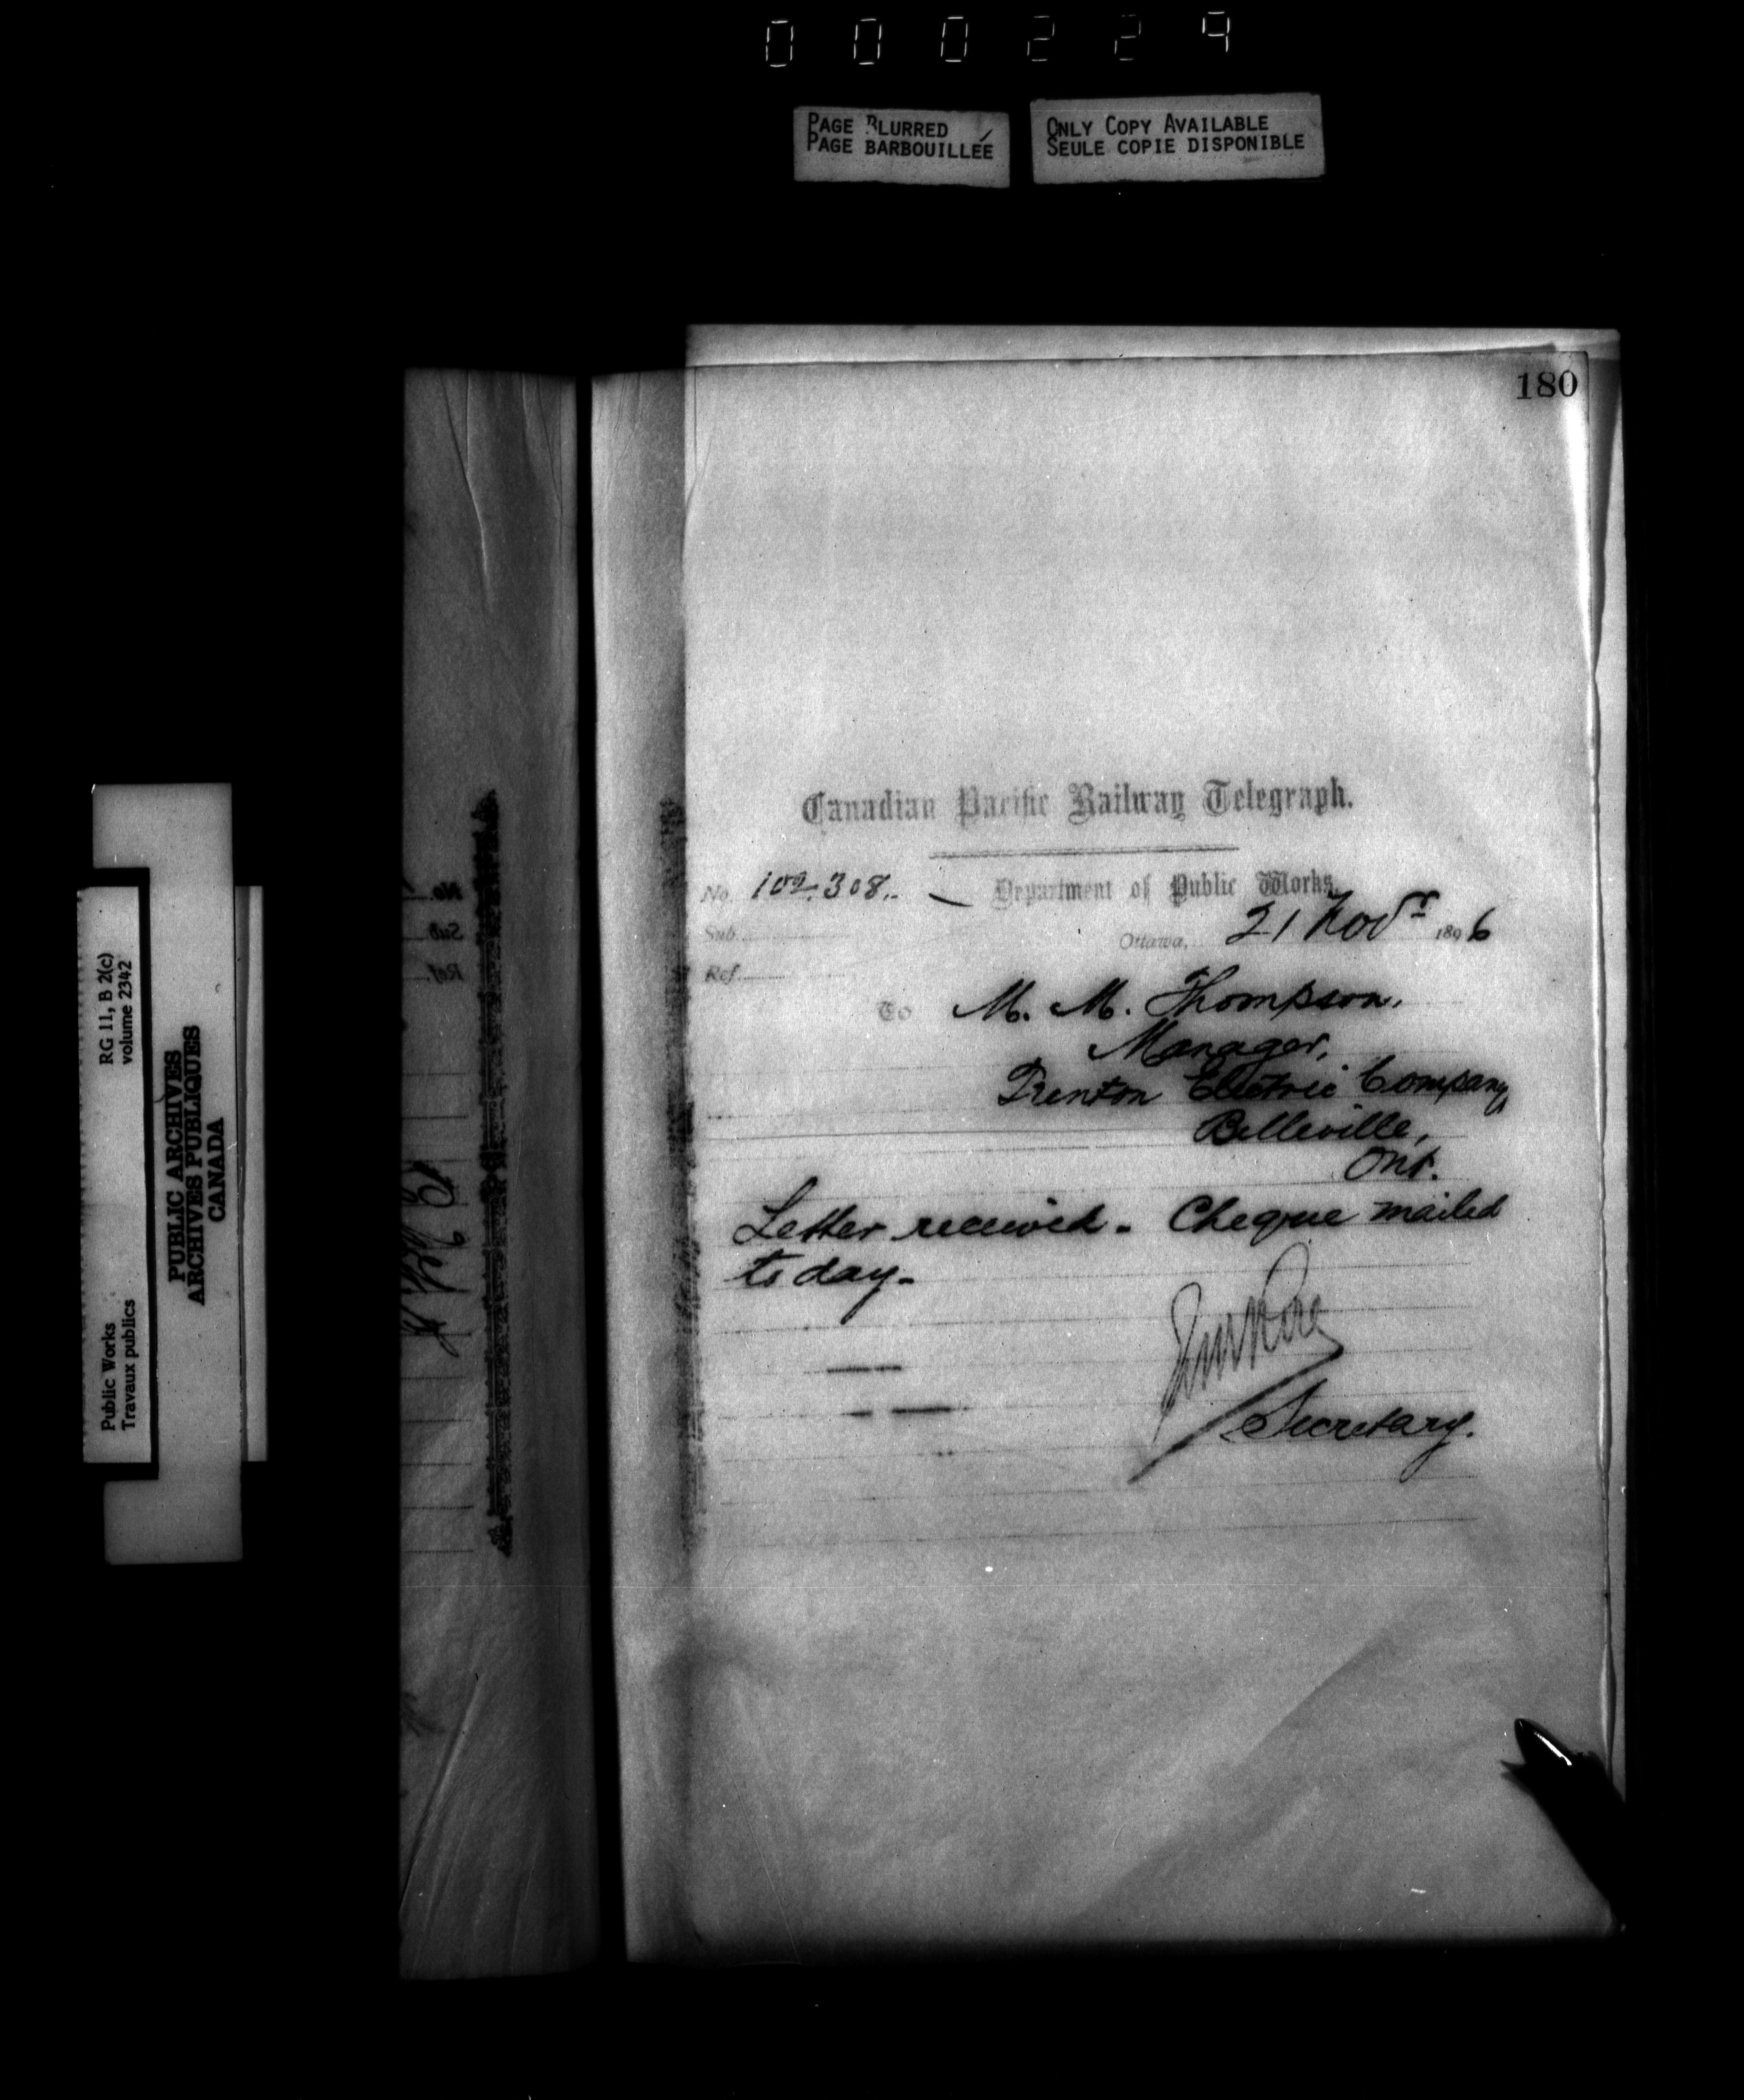 000229
PAGE BLURRED
PAGE BARBOUILLÉE
ONLY COPY AVAILABLE
SEULE COPIE DISPONIBLE
180
Canadian Pacific Railway Telegraph.
No. 102.308.
Department of Public Works,
Sub.
Ottawa, 21 Novr 1896
Ref.
To M. M. Thompson,
Manager,
Trenton Electric Company,
Belleville,
Ont.
Letter received. Cheque mailed
to day.
Secretary.
Public Works
Travaux publics
RG 11, B 2(c)
volume 2342
PUBLIC ARCHIVES
ARCHIVES PUBLIQUES
CANADA
No.
Sub
Ref.